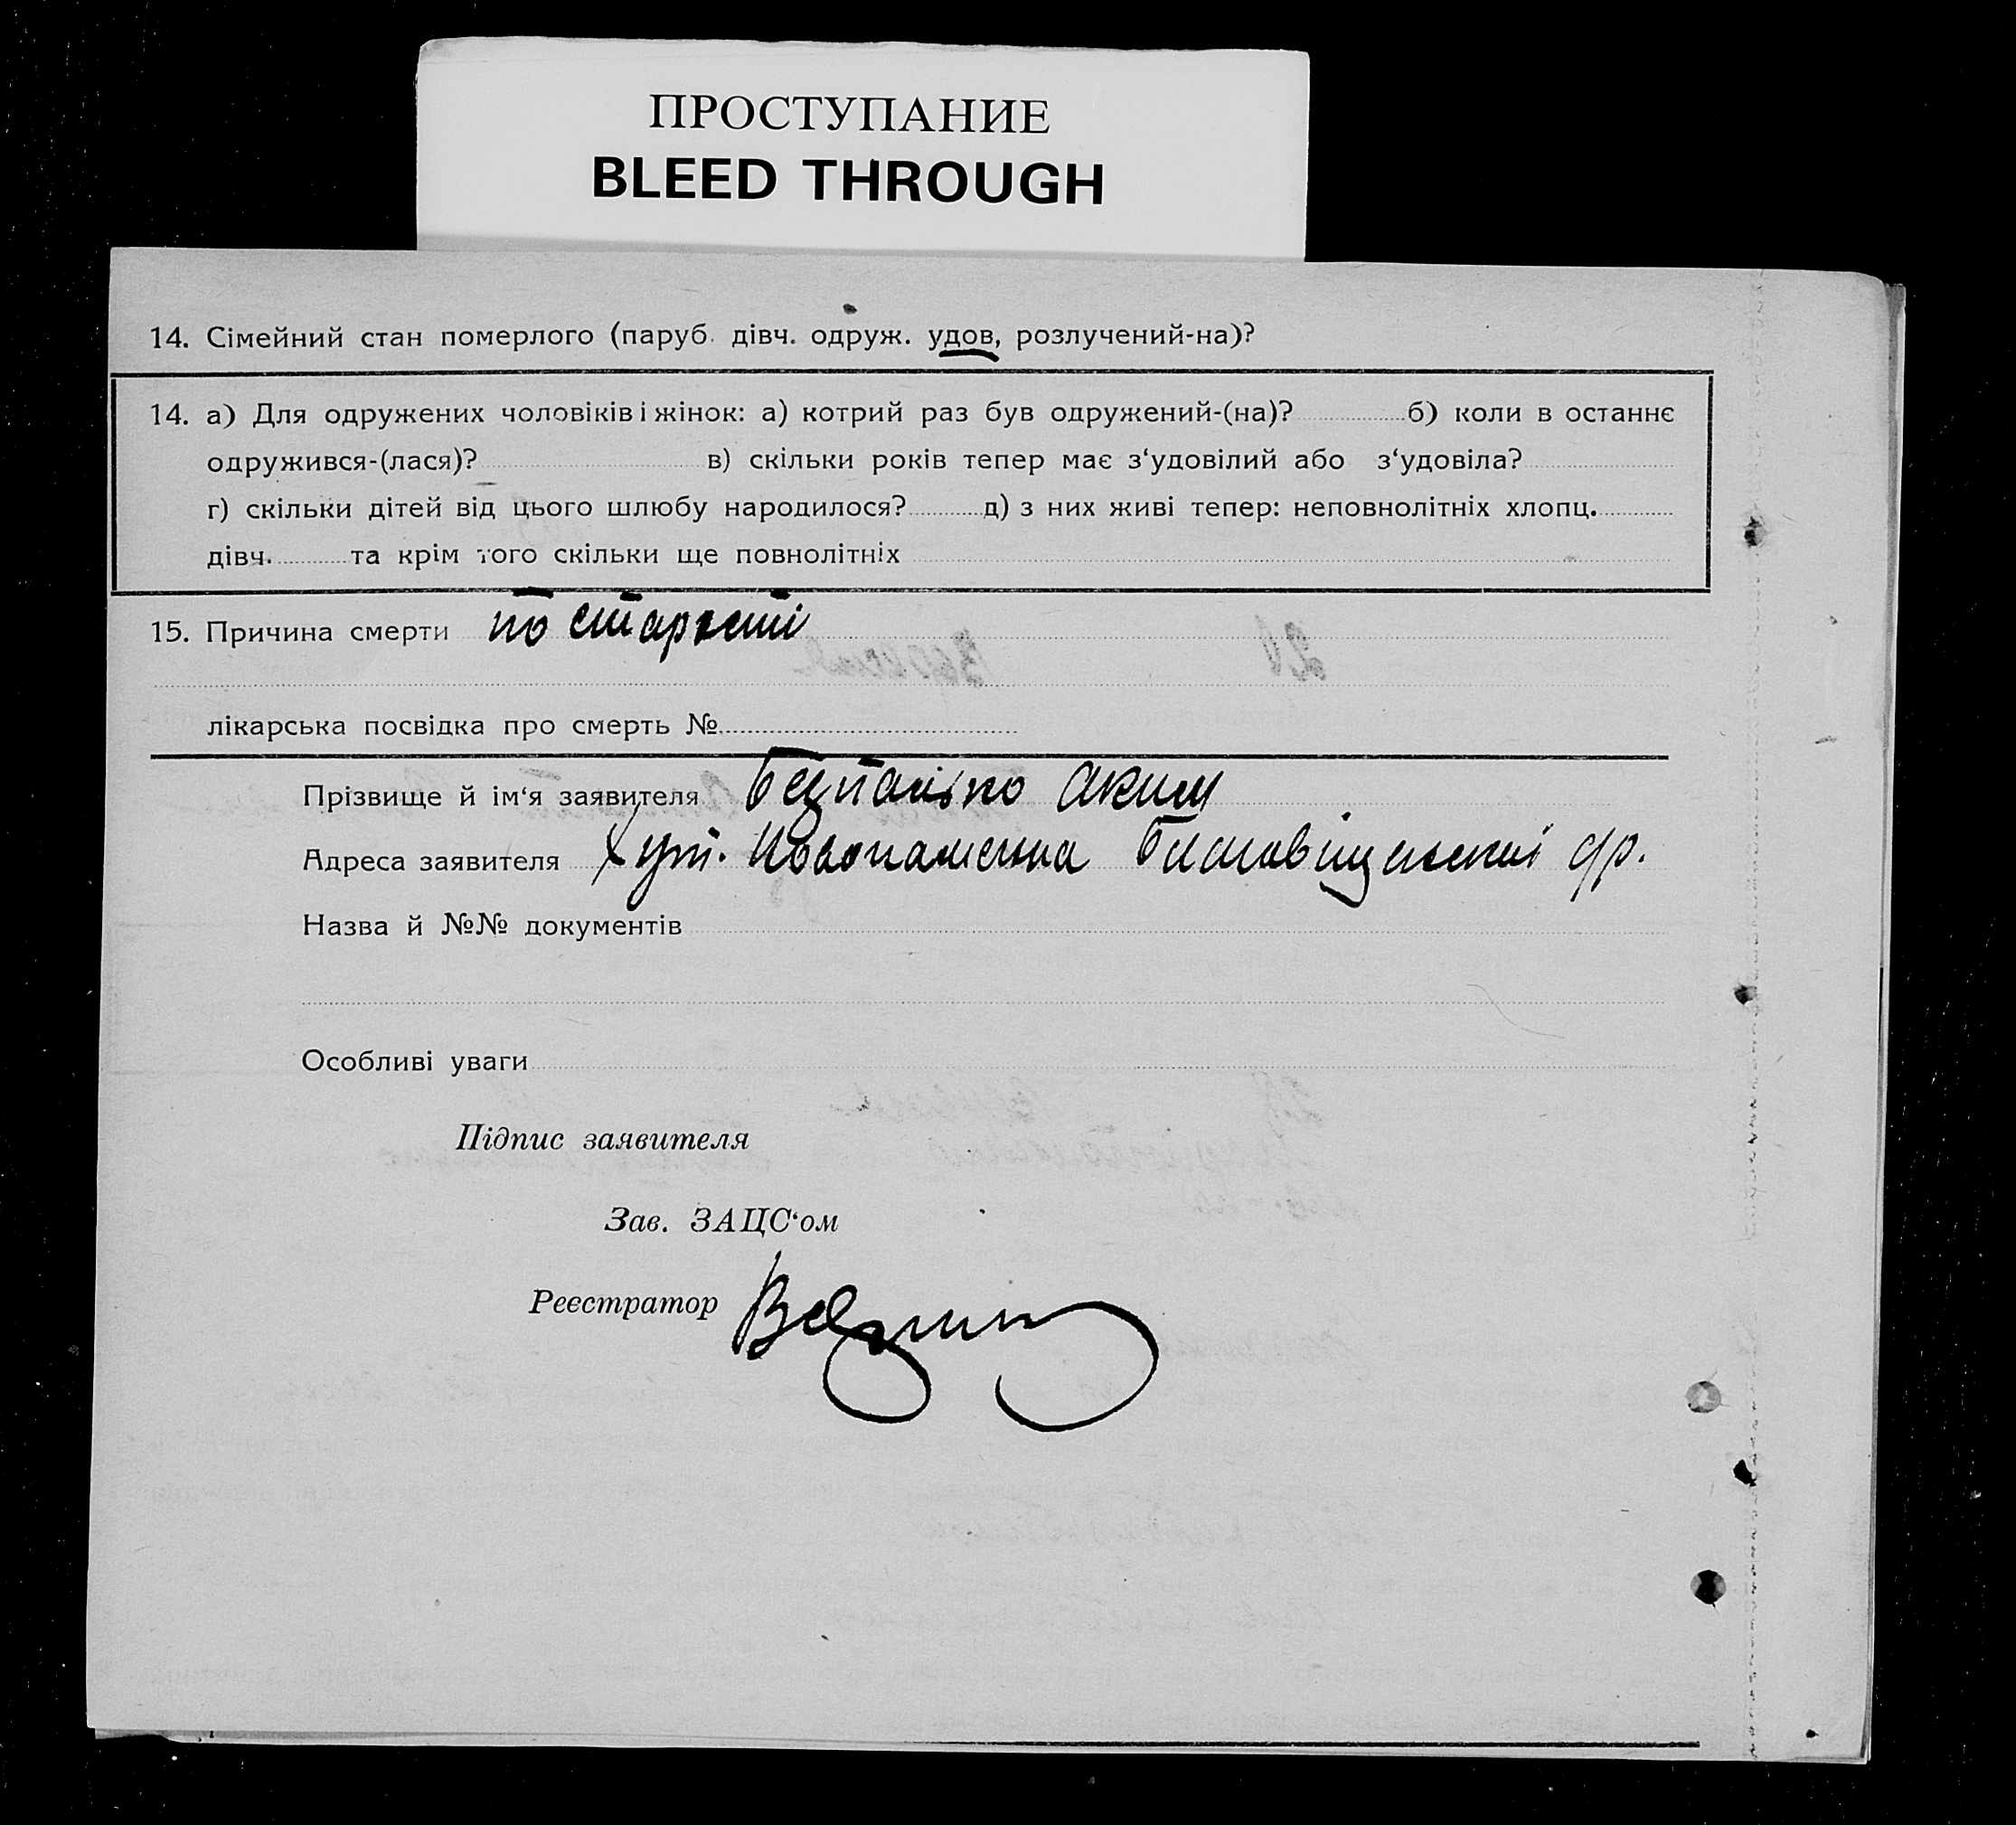 ПРОСТУПАНИЕ
BLEED THROUGH
14. Сімейний стан померлого (паруб. дівч. одруж. удов, розлучений-на)?
14. а) Для одружених чоловіків і жінок: а) котрий раз був одружений-(на)? б) коли в останнє
одружився-(лася)? в) скільки років тепер має з‘удовілий або з‘удовіла?
г) скільки дітей від цього шлюбу народилося? д) з них живі тепер: неповнолітніх хлопц.
дівч. та крім того скільки ще повнолітніх
15. Причина смерти по старости
лікарська посвідка про смерть №
Прізвище й ім‘я заявителя Безпалько Аким
Адреса заявителя Хут. с/р.
Назва й №№ документів
Особливі уваги
Підпис заявителя
Зав. ЗАЦС‘ом
Реєстратор